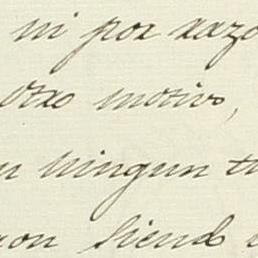 ni por razo
otro motivo,
n ningun t
ron siend